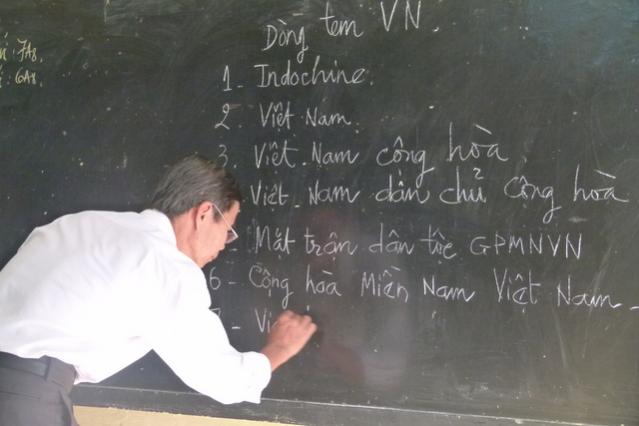 7A8,
6A8,
Dòng tem VN.
1 - Indochine.
2. Việt Nam.
3. Việt. Nam công hòa
Việt. Nam dân chủ Cộng hòa
Mặt trận dân tộc GPMNVN
6 - Cộng hòa Miền Nam Việt Nam -
- Vi